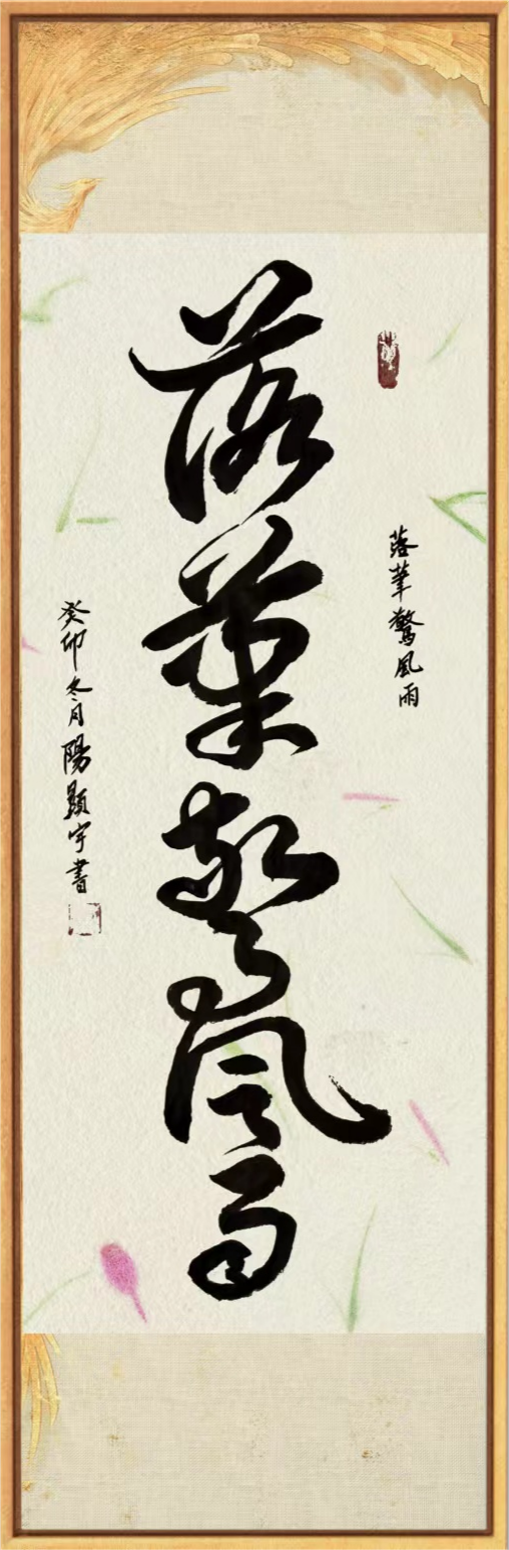 落筆驚風雨
落筆驚風雨
癸卯冬月陽顯宇書